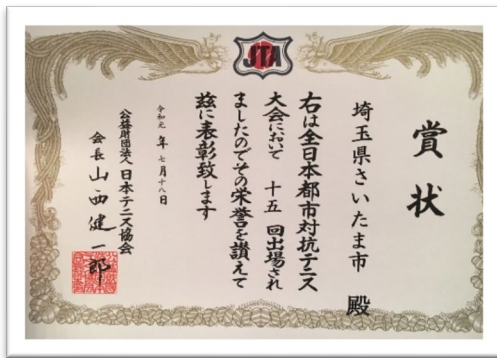 JTA
賞状
埼玉県さいたま市 殿
右は全日本都市対抗テニス
大会において 十五 回出場され
ましたのでその栄誉を讃えて
茲に表彰致します
令和元 年 七月十八日
公益財団法人 日本テニス協会
会長 山西健一郎